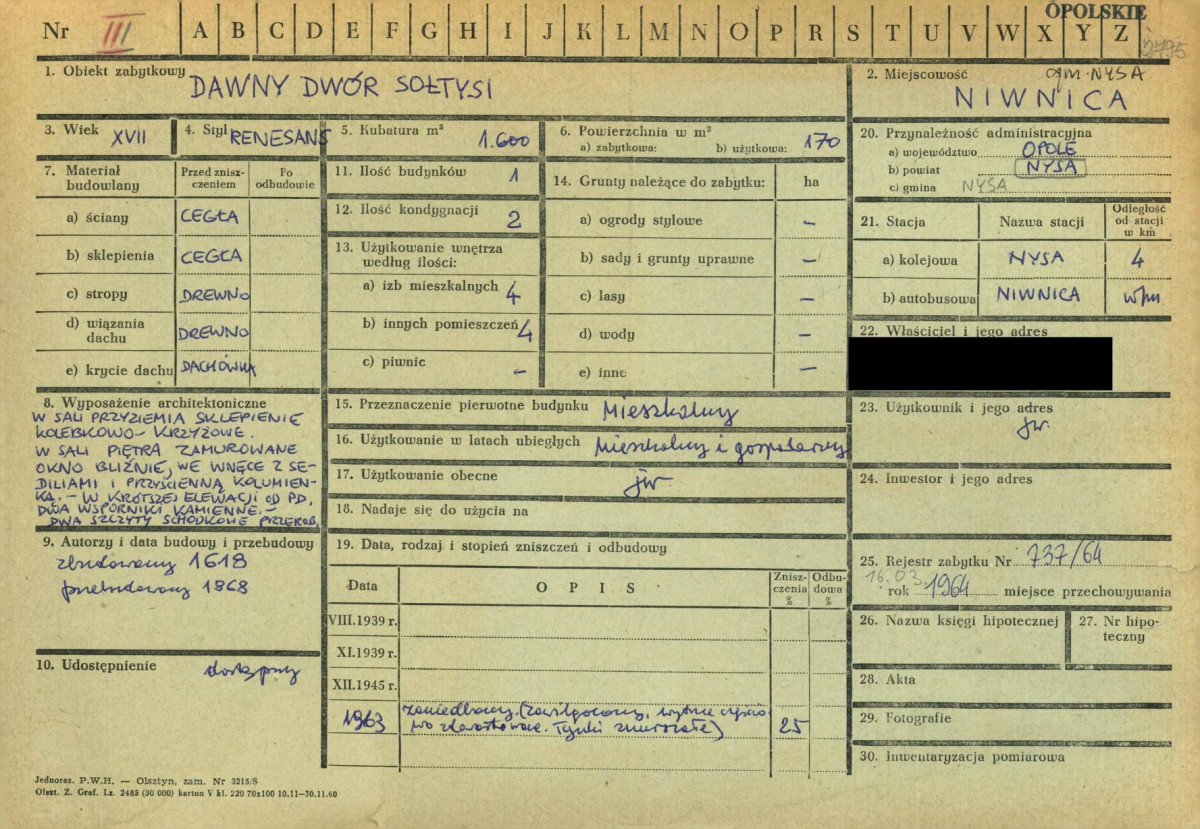 OPOLSKIE
Nr III A B C D E F G H I J K L M N O P R S T U V W X Y Z
2795
1. Obiekt zabytkowy DAWNY DWÓR SOŁTYSI
2. Miejscowość gm. NYSA
NIWNICA
3. Wiek XVII
4. Styl RENESANS
5. Kubatura m³ 1.600
6. Powierzchnia w m²
a) zabytkowa: b) użytkowa: 170
7. Materiał budowlany
Przed zniszczeniem
Po odbudowie
a) ściany CEGŁA
b) sklepienia CEGŁA
c) stropy DREWNO
d) wiązania dachu DREWNO
e) krycie dachu DACHÓWKA
8. Wyposażenie architektoniczne
W SALI PRZYZIEMIA SKLEPIENIE
KOLEBKOWO-KRZYŻOWE.
W SALI PIĘTRA ZAMUROWANE
OKNO BLIŹNIE, WE WNĘCE Z SE-
DILIAMI I PRZYŚCIENNĄ KOLUMIEN-
KĄ. - W KRÓTSZEJ ELEWACJI OD PD,
DWA WSPORNIKI KAMIENNE. -
DWA SZCZYTY SCHODKOWE PRZEROB.
9. Autorzy i data budowy i przebudowy
zbudowany 1618
przebudowany 1868
10. Udostępnienie dostępny
11. Ilość budynków 1
12. Ilość kondygnacji 2
13. Użytkowanie wnętrza
według ilości:
a) izb mieszkalnych 4
b) innych pomieszczeń 4
c) piwnic -
14. Grunty należące do zabytku: ha
a) ogrody stylowe -
b) sady i grunty uprawne -
c) lasy -
d) wody -
e) inne -
15. Przeznaczenie pierwotne budynku Mieszkalny
16. Użytkowanie w latach ubiegłych Mieszkalny i gospodarczy
17. Użytkowanie obecne jw
18. Nadaje się do użycia na
19. Data, rodzaj i stopień zniszczeń i odbudowy
Data
OPIS
Zniszczenia %
Odbudowa %
VIII.1939 r.
XI.1939 r.
XII.1945 r.
1963 zaniedbany. (zawilgocony, więźba częścio
wo zbutwiała. Tynki zmurszałe) 25
20. Przynależność administracyjna
a) województwo OPOLE
b) powiat NYSA
c) gmina NYSA
21. Stacja
Nazwa stacji
Odległość od stacji w km
a) kolejowa NYSA 4
b) autobusowa NIWNICA
22. Właściciel i jego adres
23. Użytkownik i jego adres
jw.
24. Inwestor i jego adres
25. Rejestr zabytku Nr 737/64
16.03.
rok 1964 miejsce przechowywania
26. Nazwa księgi hipotecznej
27. Nr hipo-
teczny
28. Akta
29. Fotografie
30. Inwentaryzacja pomiarowa
Jednoraz. P.W.H. — Olsztyn, zam. Nr 3215/S
Olszt. Z. Graf. Lz. 2485 (30 000) karton V kl. 220 70x100 10.11—30.11.60